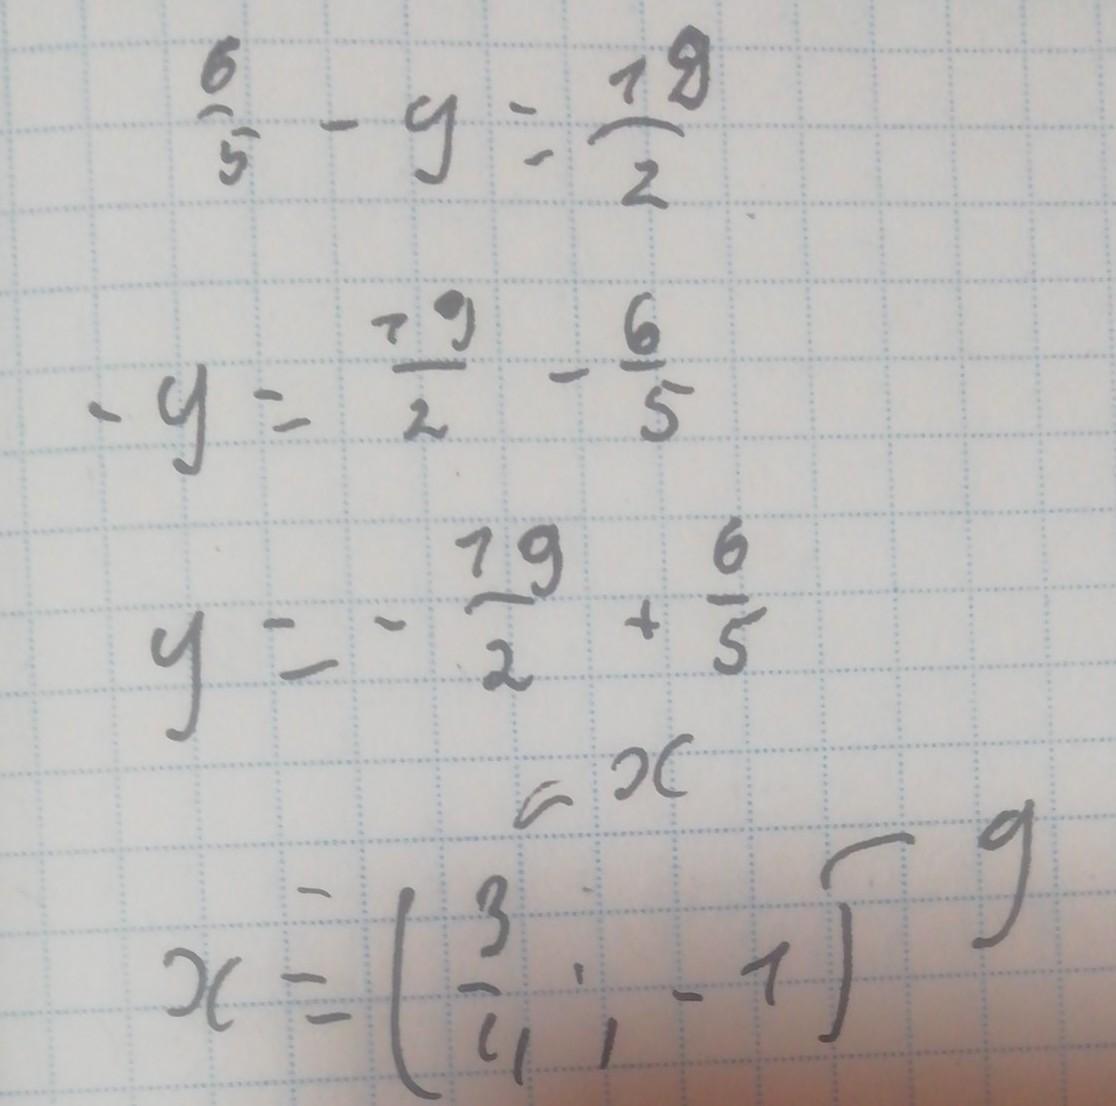 6/5 - y = 19/2
-y = 19/2 - 6/5
y = -19/2 + 6/5
x
y
x = (3/4; -1)